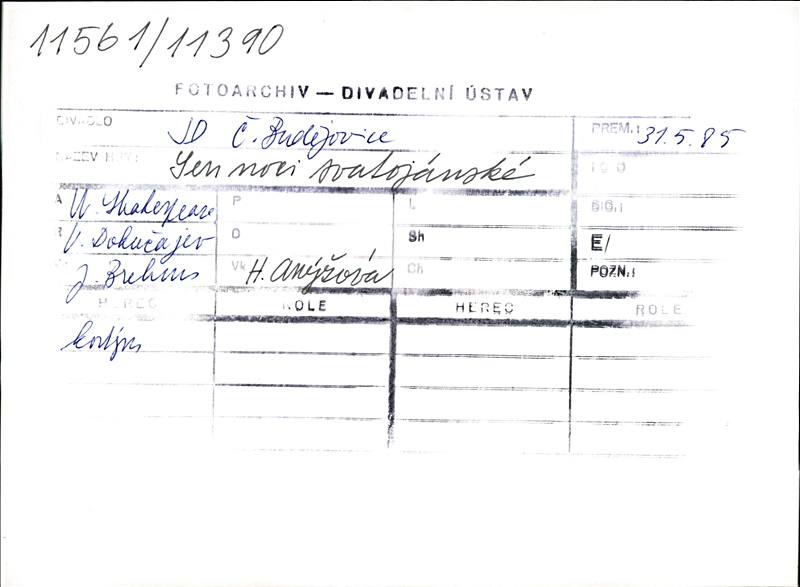 11561/11390
FOTOARCHIV — DIVADELNÍ ÚSTAV
DIVADLO JD Č. Budějovice PREM.: 31.5.85
NÁZEV HRY: Sen noci svatojánské
A W. Shakespeare P L
R V. Dokučajev D Sh E/
J. Brehms Vk H. Anýžová Ch POZN.:
HEREC ROLE HEREC ROLE
kostým